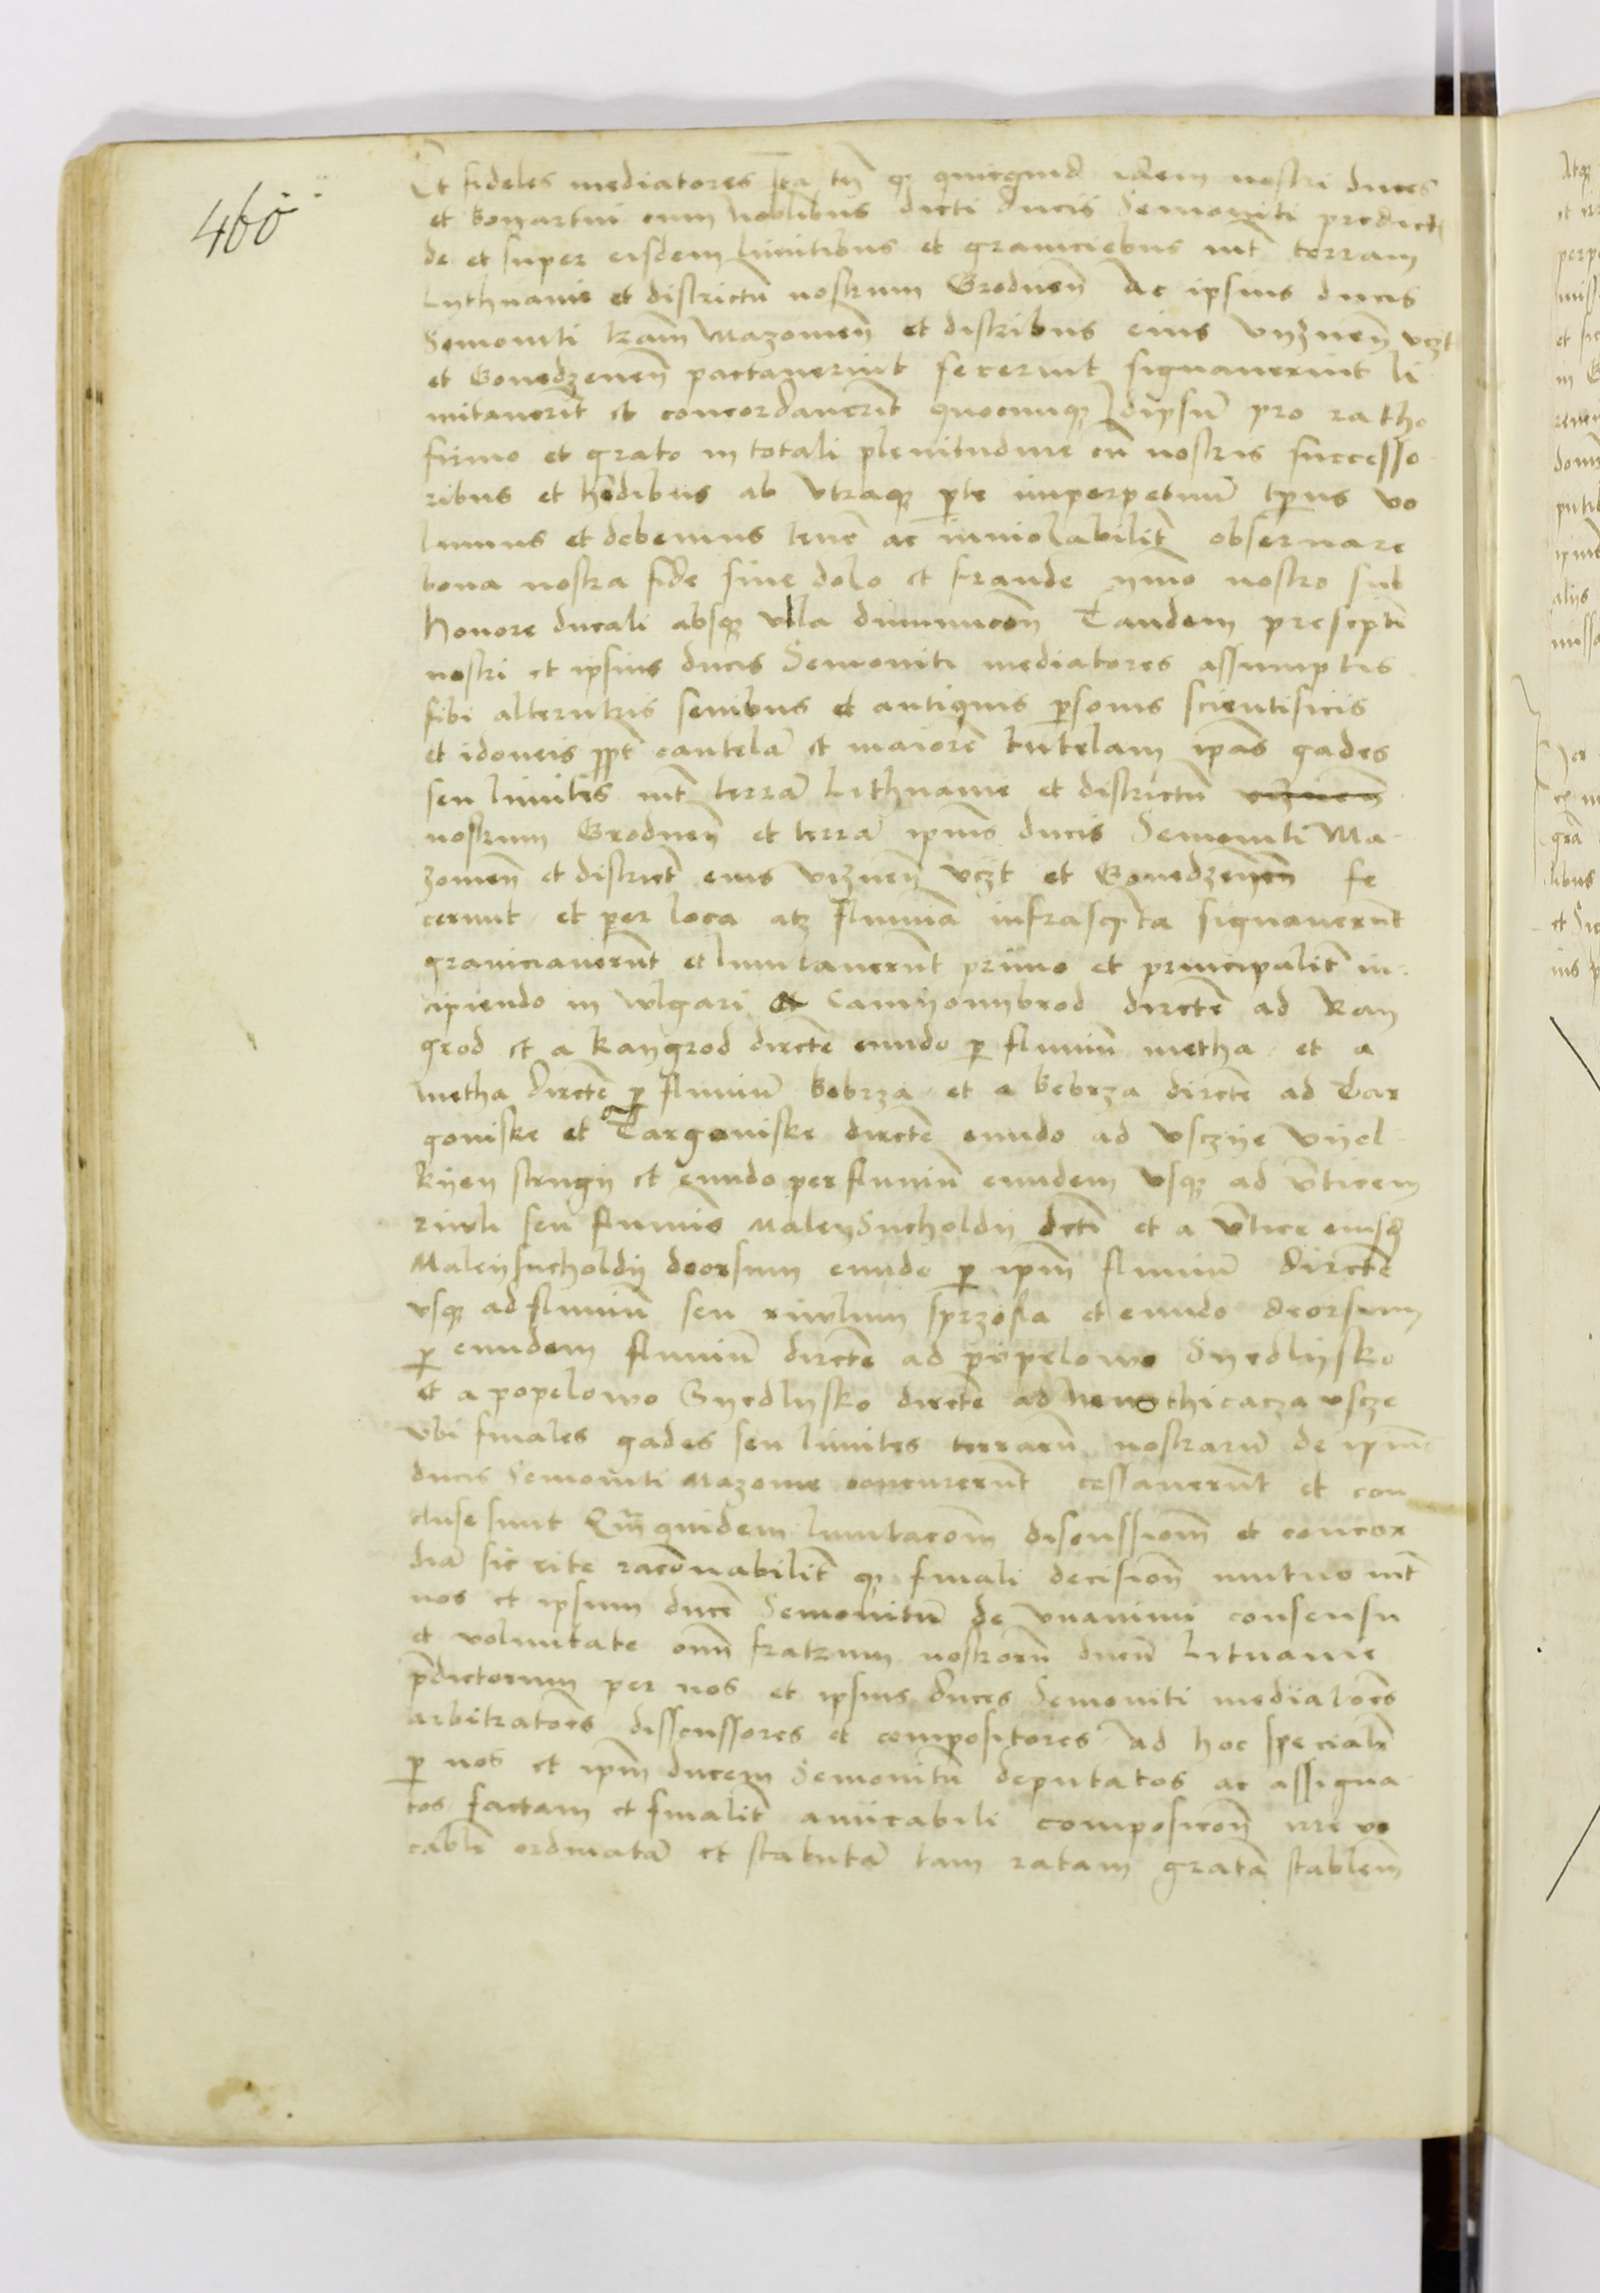 460
Et fideles mediatores Ita tn̄ qꝫ quicquid idem nostri duces
et Bonartui cum Noblibus dicti ducis Semoviti predicti
de et super eisdem limitibus et graniciebus int̄ terram
Lythuanie et districtū nostrum Grodnen̄ Ac ipsius ducis
Semoviti tr̄am Mazovien̄ et distribus eius Vyznen̄ vczt
et Gonedzenen̄ pactaverint fecerint signaverint li
mitaverīt et concordaverīt quocumqꝫ Idipsū pro ratho
firmo et grato in totali plenitudine cū nostris successo
ribus et hēdibus ab vtraqꝫ pte imperpetuū tp̄us vo
lumus et debemus tenē ac inviolabilit̄ observare
bona nostra fide sine dolo et fraude ymo nostro sub
honore ducali absqꝫ vlla diminucōn Tandem prescpti
nostri et ipsius ducis Semoviti mediatores assumptis
sibi alterutris senibus et antiquis p̱sonis scientificis
et idoneis ppt̄ cautelā et maiorē tutelam ip̄as gades
seu limites int̄ terrā Lithuanie et districtū
nostrum Grodnen̄ et terrā ipius ducis Semoviti Ma
zovien̄ et district eius viznen̄ vczt et Gonedzenen̄ fe
cerunt et per loca atꝫ fluuia infrascpta signaverūt
graniciaverūt et limitaverūt primo et principalit̄ in
cipiendo in wlgari a Camyonnybrod dirctē ad Ran
grod et a Rangrod dirctē eundo p̱ fluuiū metha et a
metha dirctē p̱ fluuiū bebrza et a bebrza dirctē ad Tar
goviske et a Targoviske dirctē eundo ad vsczye vyel
kyey strugy et eundo per fluuiū eundem vsqꝫ ad v̄ticem
riwli seu fluuiis Maleysucholdy dcti et a v̄tice eiusd
Maleysucholdy deorsum eundo p̱ ipm̄ fluuiū dirctē
vsqꝫ ad fluuiū seu riwlum sprzosla et eundo deorsum
p̱ eundem fluuiū dirctē ad popelowo Syedlysko
et a popelowo Syedlysko dirctē ad Newothicacza vscze
vbi finales gades seu limites terrarū nostrarū de ipius
ducis Semoviti Mazovie concurerūt cessaverūt et con
cluse sunt Qm̄quidem limitacōm discussiom̄ et concor
diā sic rite racōnabilit̄ qꝫ finali decision̄ mutuo int̄
nos et ipsum ducē Semovitū de vnanimi consensu
et voluntate om̄ fratrum nostrorū ducū Lituanie
p̄dictorum per nos et ipsius duces Semoviti mediatoēs
arbitratoēs disscussores et compositores ad hoc specialit̄
p̱ nos et ipm̄ ducem Semovitū deputatos ac assigna
tos factam et finalit̄ amicabili composicon̄ irrevo
cabli ordinatā et statutā tam ratam gratā stablem̄